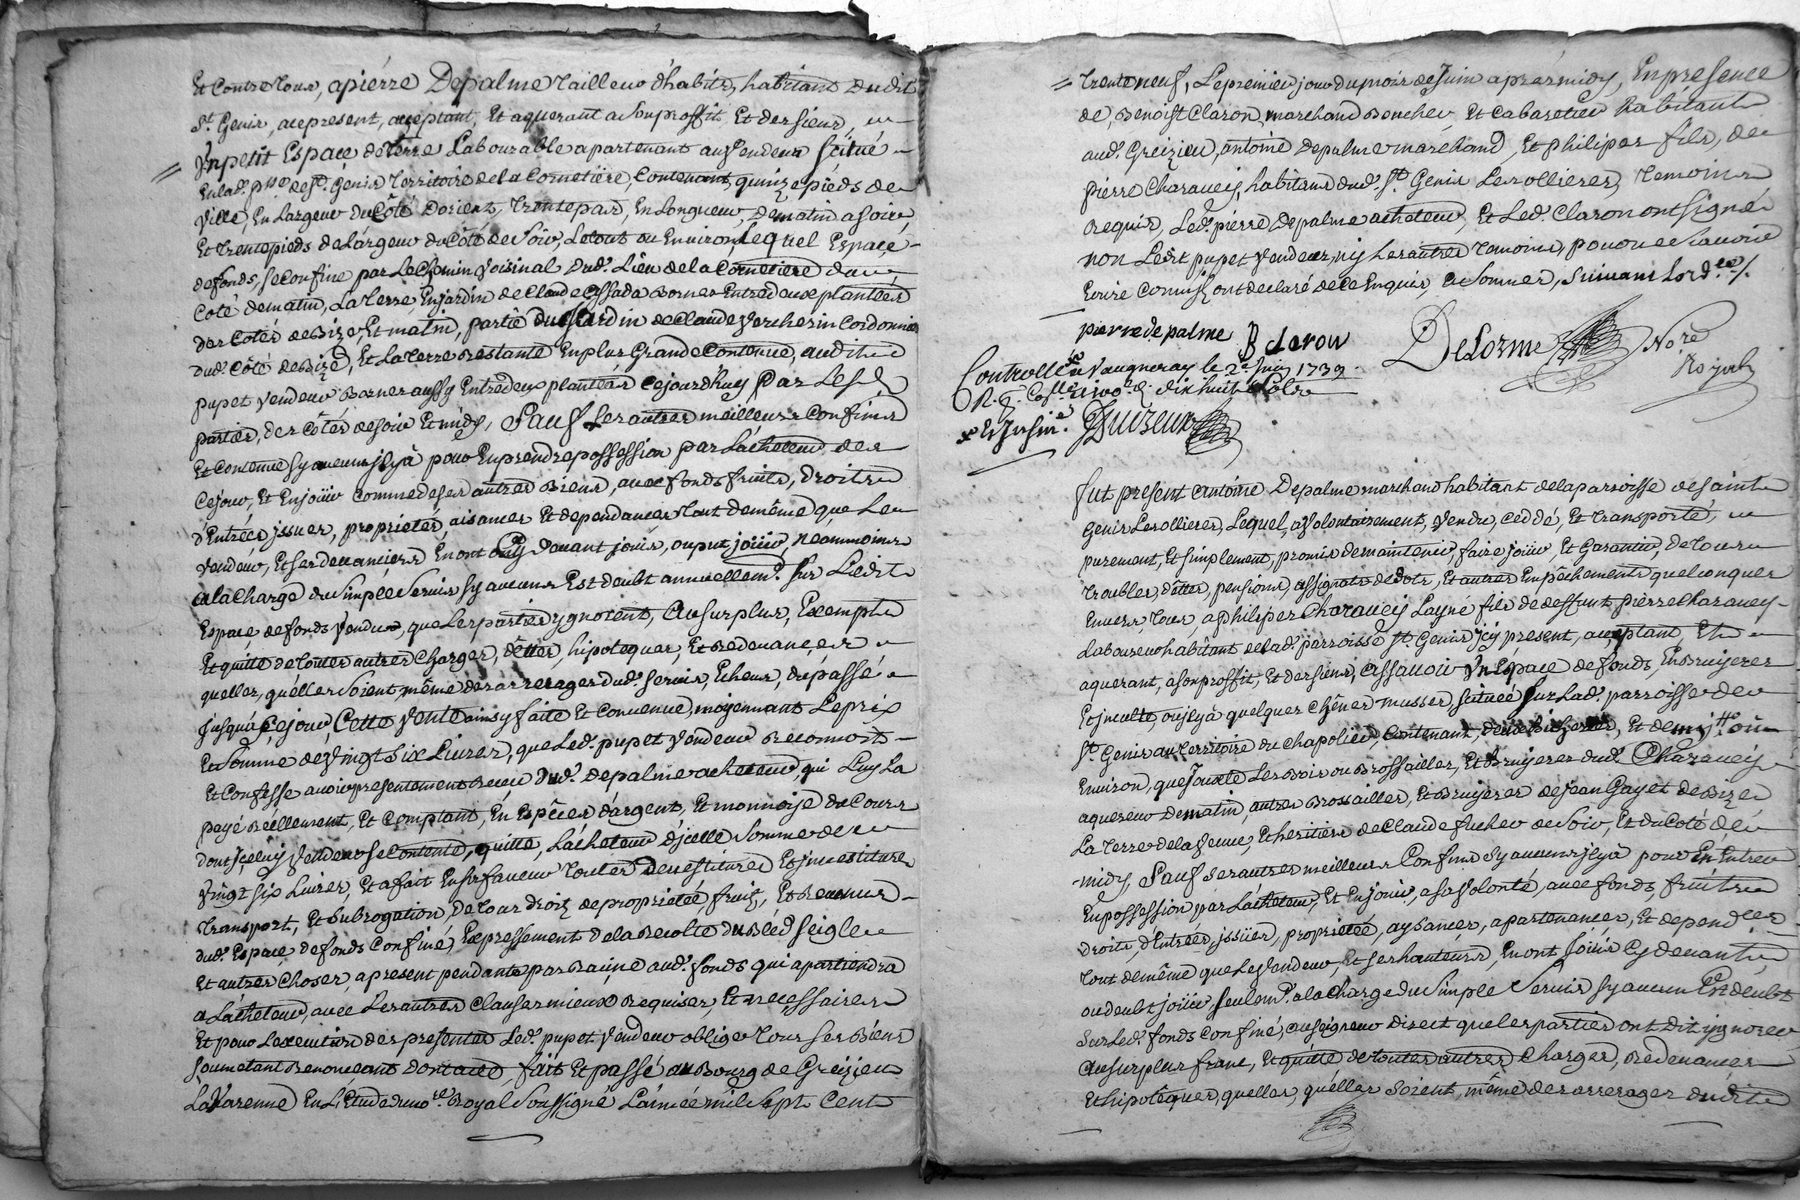 Et Contre Tous, a pierre Depalme Tailleur d'habits, habitant Dudit
St. Genis, ace present, aceptant, Et aquerant a Son proffit Et des siens,
Un petit Espace de Terre Labourable apartenant au Vendeur Scitué
En lad. psse de St. Genis Territoire de la Cornetiere, Contenant, quinze pieds de
Ville, En Largeur du Coté Dorient, Trente pas, En Longueur, De matin a soir,
Et Trente pieds de Largeur du Côté de Soir, Le tout ou Environ Lequel Espace,
de fonds, se Confine par Le Chemin Voisinal Dud. Lieu de la Cornetiere du
Coté de matin, La Terre, En jardin de Claude Assada Bornes Entredeux plantées
des Cotés de Bize, Et matin, partie du Jardin de Claude Vercherin Cordonnier
dud. Côté de Bize, Et La Terre Restante En plus Grande Contenue, audit
pupet Vendeur Bornes aussy Entredeux plantées Cejourd'huy par Les d.
parties, des Côtés de soir Et midy, Sauf Les autres meilleurs Confins
Et Contenue sy aucuns jl y à pour En prendre possession par Lacheteur des
Cejour, Et En joüir Comme de ses autres Biens, avec fonds fruits, Droits
d'Entrées jssues, proprietés, aisances Et dependances Tout de même que Le
Vendeur, Et ses devanciers En ont Cy Devant joüis, ou put joüir, Néanmoins
a la Charge du Simple Servis sy aucuns Est deubt annuellemt. sur Ledit
Espace de fonds Vendu, que Les parties ygnorent, Au surplus, Exempt
Et quitte de Toutes autres Charges, dettes, hipoteques, Et Redevances
quelles, qu'elles Soient même des arrerages dud. Servis, Echeus, du passé
Jusqu'à Cejour, Cette Vente ainsy faite Et Convenue, moyennant Le prix
Et Somme de Vingt Six Livres, que Led. pupet Vendeur Reconnoit
Et Confesse avoir presentement Receu Dud. Depalme acheteur, qui Luy La
payé Réellement, Et Comptant, En Espèces d'argent, Et monnoise du Cours
dont Jceluy Vendeur se Contente, quitte, Lacheteur d'jcelle Somme de
Vingt six Livres, Et a fait En sa faveur Toutes Devestitures Et jnvestitures
Transport, Et Subrogation, De Tous Droits de proprieté, fruits, Et Revenus
dud. Espace de fonds Confiné, Expressement de la Recolte du Bled seigle
Et autres Choses, a present pendants par Racine aud. fonds qui apartiendra
a Lacheteur, avec Les autres Clauses mieux Requises, Et necessaires
Et pour Lexecution des presentes Led. pupet Vendeur oblige Tous Ses Biens
Soumetant Renonceant Dont acte fait Et passé au Bourg de Greizieu
La Varenne En L'Etude du nore. Royal Soussigné L'année mil Sept Cent
Trente neuf, Le premier jour du mois de Juin aprés midy, En presence
de, Benoist Claron, marchand Boucher Et Cabaretier habitant
aud. Greizieu, antoine Depalme marchand, Et philipes fils, de
pierre Charaucy, habitans dud. St. Genis Les ollieres, Temoins
Requis, Led. pierre Depalme acheteur, Et Led. Claron ont Signé
non Ledt pupet Vendeur, ny Les autres Temoins, pour ne Savoir
Ecrire Comm'jls ont declaré de Ce Enquis, Et Sommés, Suivant Lordce./.
pierre de palme B claron Delorme Nore. Royal
Controllé a Vaugneray le 2e Juin 1739.
R. dix huit Sols
Et Jnsin.
fut present antoine Depalme marchand habitant de la parroisse de Saint
Genis Les ollieres, Lequel, a Volontairement, Vendu, Ceddé, Et Transporté,
purement, Et simplement, promis de maintenir, faire joüir, Et Garantir, de Tous
Troubles, dettes, pensions, assignats de dots, Et autres Empêchements quelconques
Envers, Tous, a philipes Charaucy Layné fils de deffunt pierre Charaucy
Laboureur habitant de lad. parroisse St. Genis Jcy present, aceptant, Et
aquerant, a son proffit, Et des siens, Assavoir Un Espace de fonds, En Bruyeres
Et jnculte, ou jl y à quelques Chênes musses, Scitueé Sur Lad. parroisse de
St. Genis au Territoire du Chapolieu, Contenant, Et demy, ou
Environ, que Jouxte Les Bois ou Brossailles, Et Bruyeres dud. Charaucy
aquereur De matin, autres Brossailles, Et Bruyeres de jean Gayet de Bize
La Terre de la Veuve, Et heritiers de Claude de Soir, Et du Coté de
midy, Sauf ses autres meilleurs Confins Sy aucuns jl y à pour En Entrer
En possession par Lacheteur, Et En jouir, a sa Volonté, avec fonds, fruits
Droits, d'Entrées, jssües, proprieté, aysances, apartenances, Et dependces.
Tout de même que Le Vendeur, Et ses hauteurs, En ont Joüis Cy devant
ou deubt joüir Seulemt. a la Charge du Simple Servis Sy aucun Est deubt
Sur Led. fonds Confiné, au seigneur Direct que Les parties ont dit ygnorer
Au surplus franc, Et quitte de toutes autres Charges, Redevances
Et hipoteques, quelles, quelles Soient, même des arrerages dudit